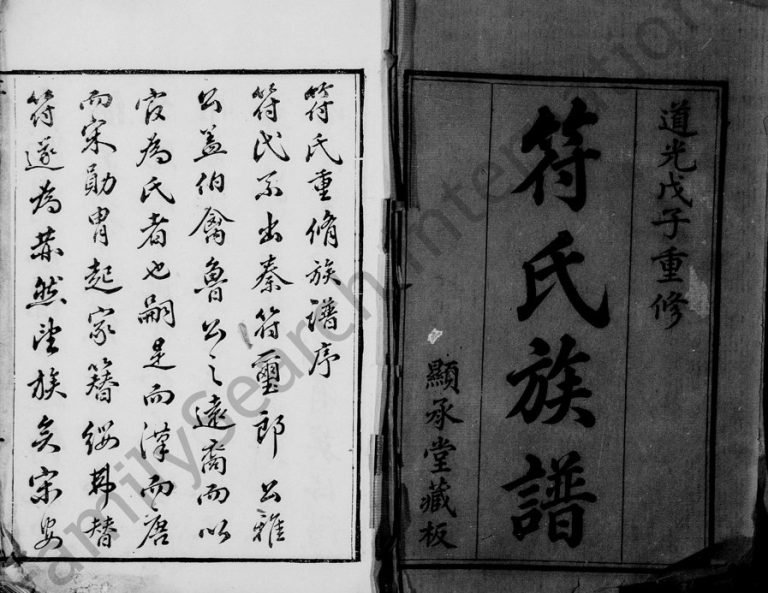 道光戊子重修
符氏族譜
顯承堂藏板
符氏重脩族譜序
符氏系出秦符璽郎公雅
公蓋伯禽魯公之遠裔而以
官為氏者也嗣是而漢而唐
而宋勛胄起家簪綬弗替
符遂為赫然望族矣宋
FamilySearch International